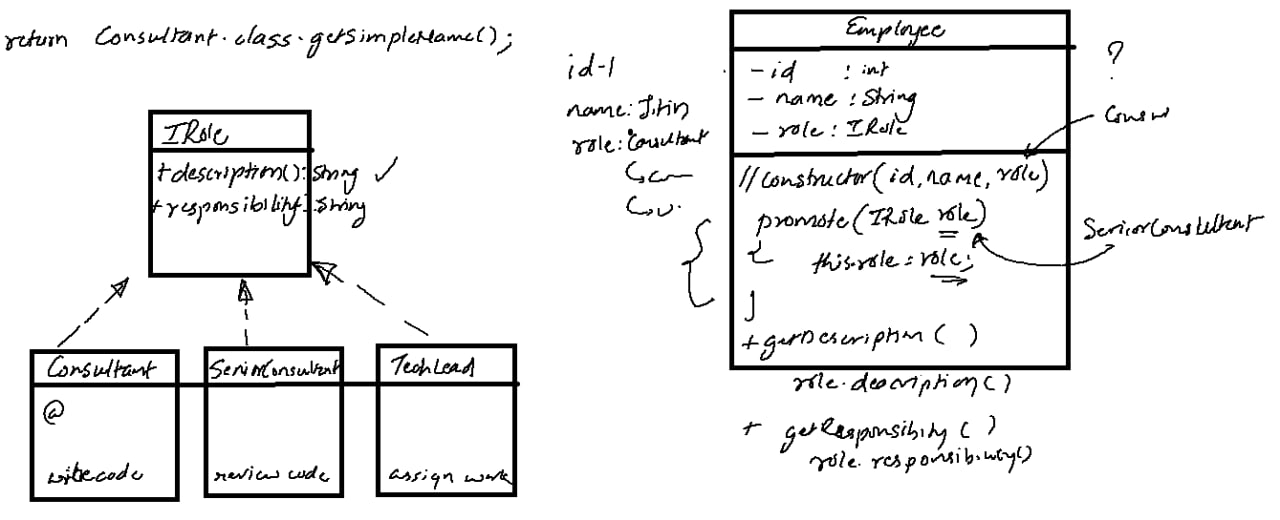 return Consultant.class.getSimpleName();
IRole
+description(): String ✓
+responsibility): String
Consultant
@
write code
SeniorConsultant
review code
TechLead
assign work
id-1
name: Jitin
role: Consultant
Employee
- id : int
- name : String
- role : IRole
?
//constructor(id, name, role)
promote(IRole role)
{
this.role = role;
}
SeniorConsultant
+getDescription( )
role.description()
+ getResponsibility( )
role.responsibility()